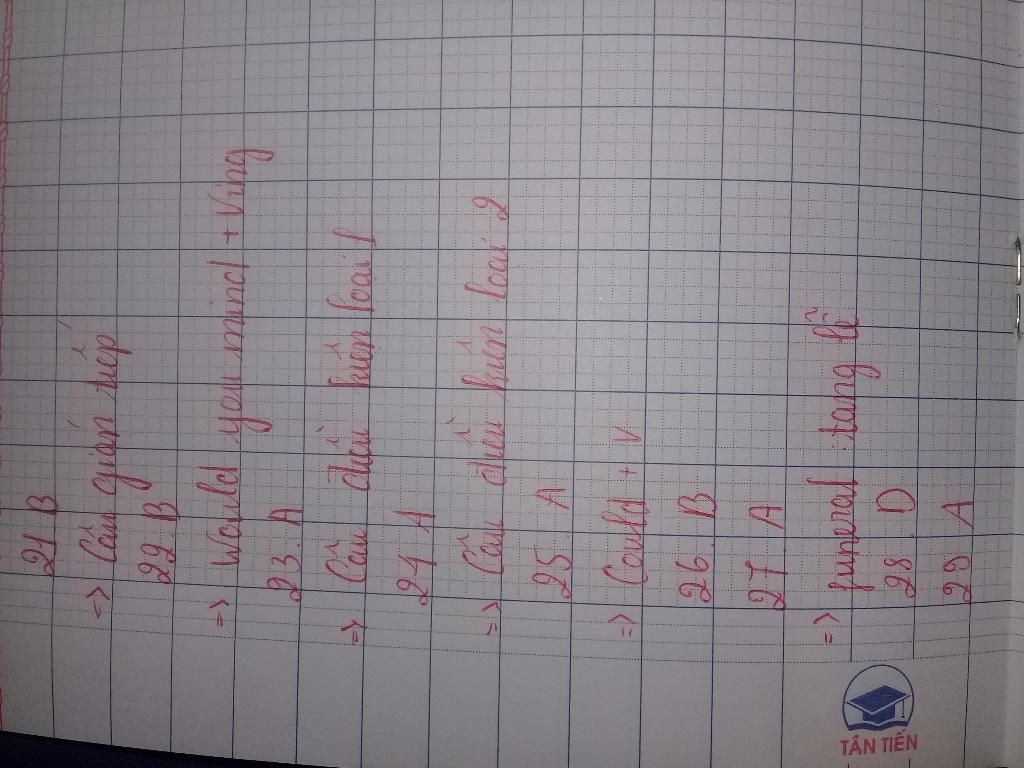 21 B
=> Câu gián tiếp
22. B
=> Would you mind + Ving
23. A
=> Câu điều kiện loại 1
24 A
=> Câu điều kiện loại 2
25 A
=> Could + V
26. B
27 A
=> funeral : tang lễ
28. D
29 A
TÂN TIẾN